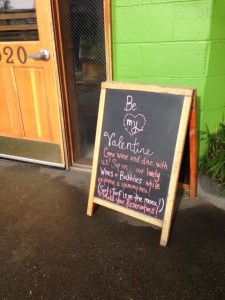 020
Be
my
Valentine
Come wine and dine with
us! Sip on our lovely
Wines + Bubblies while
enjoying a yummy meal
(Surf + Turf is on the menu!)
Make your Reservations!